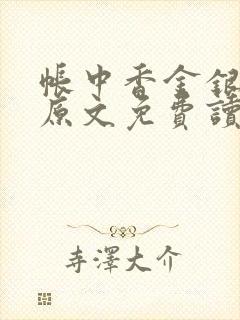 帳中香金銀
原文免費讀
寺澤大介